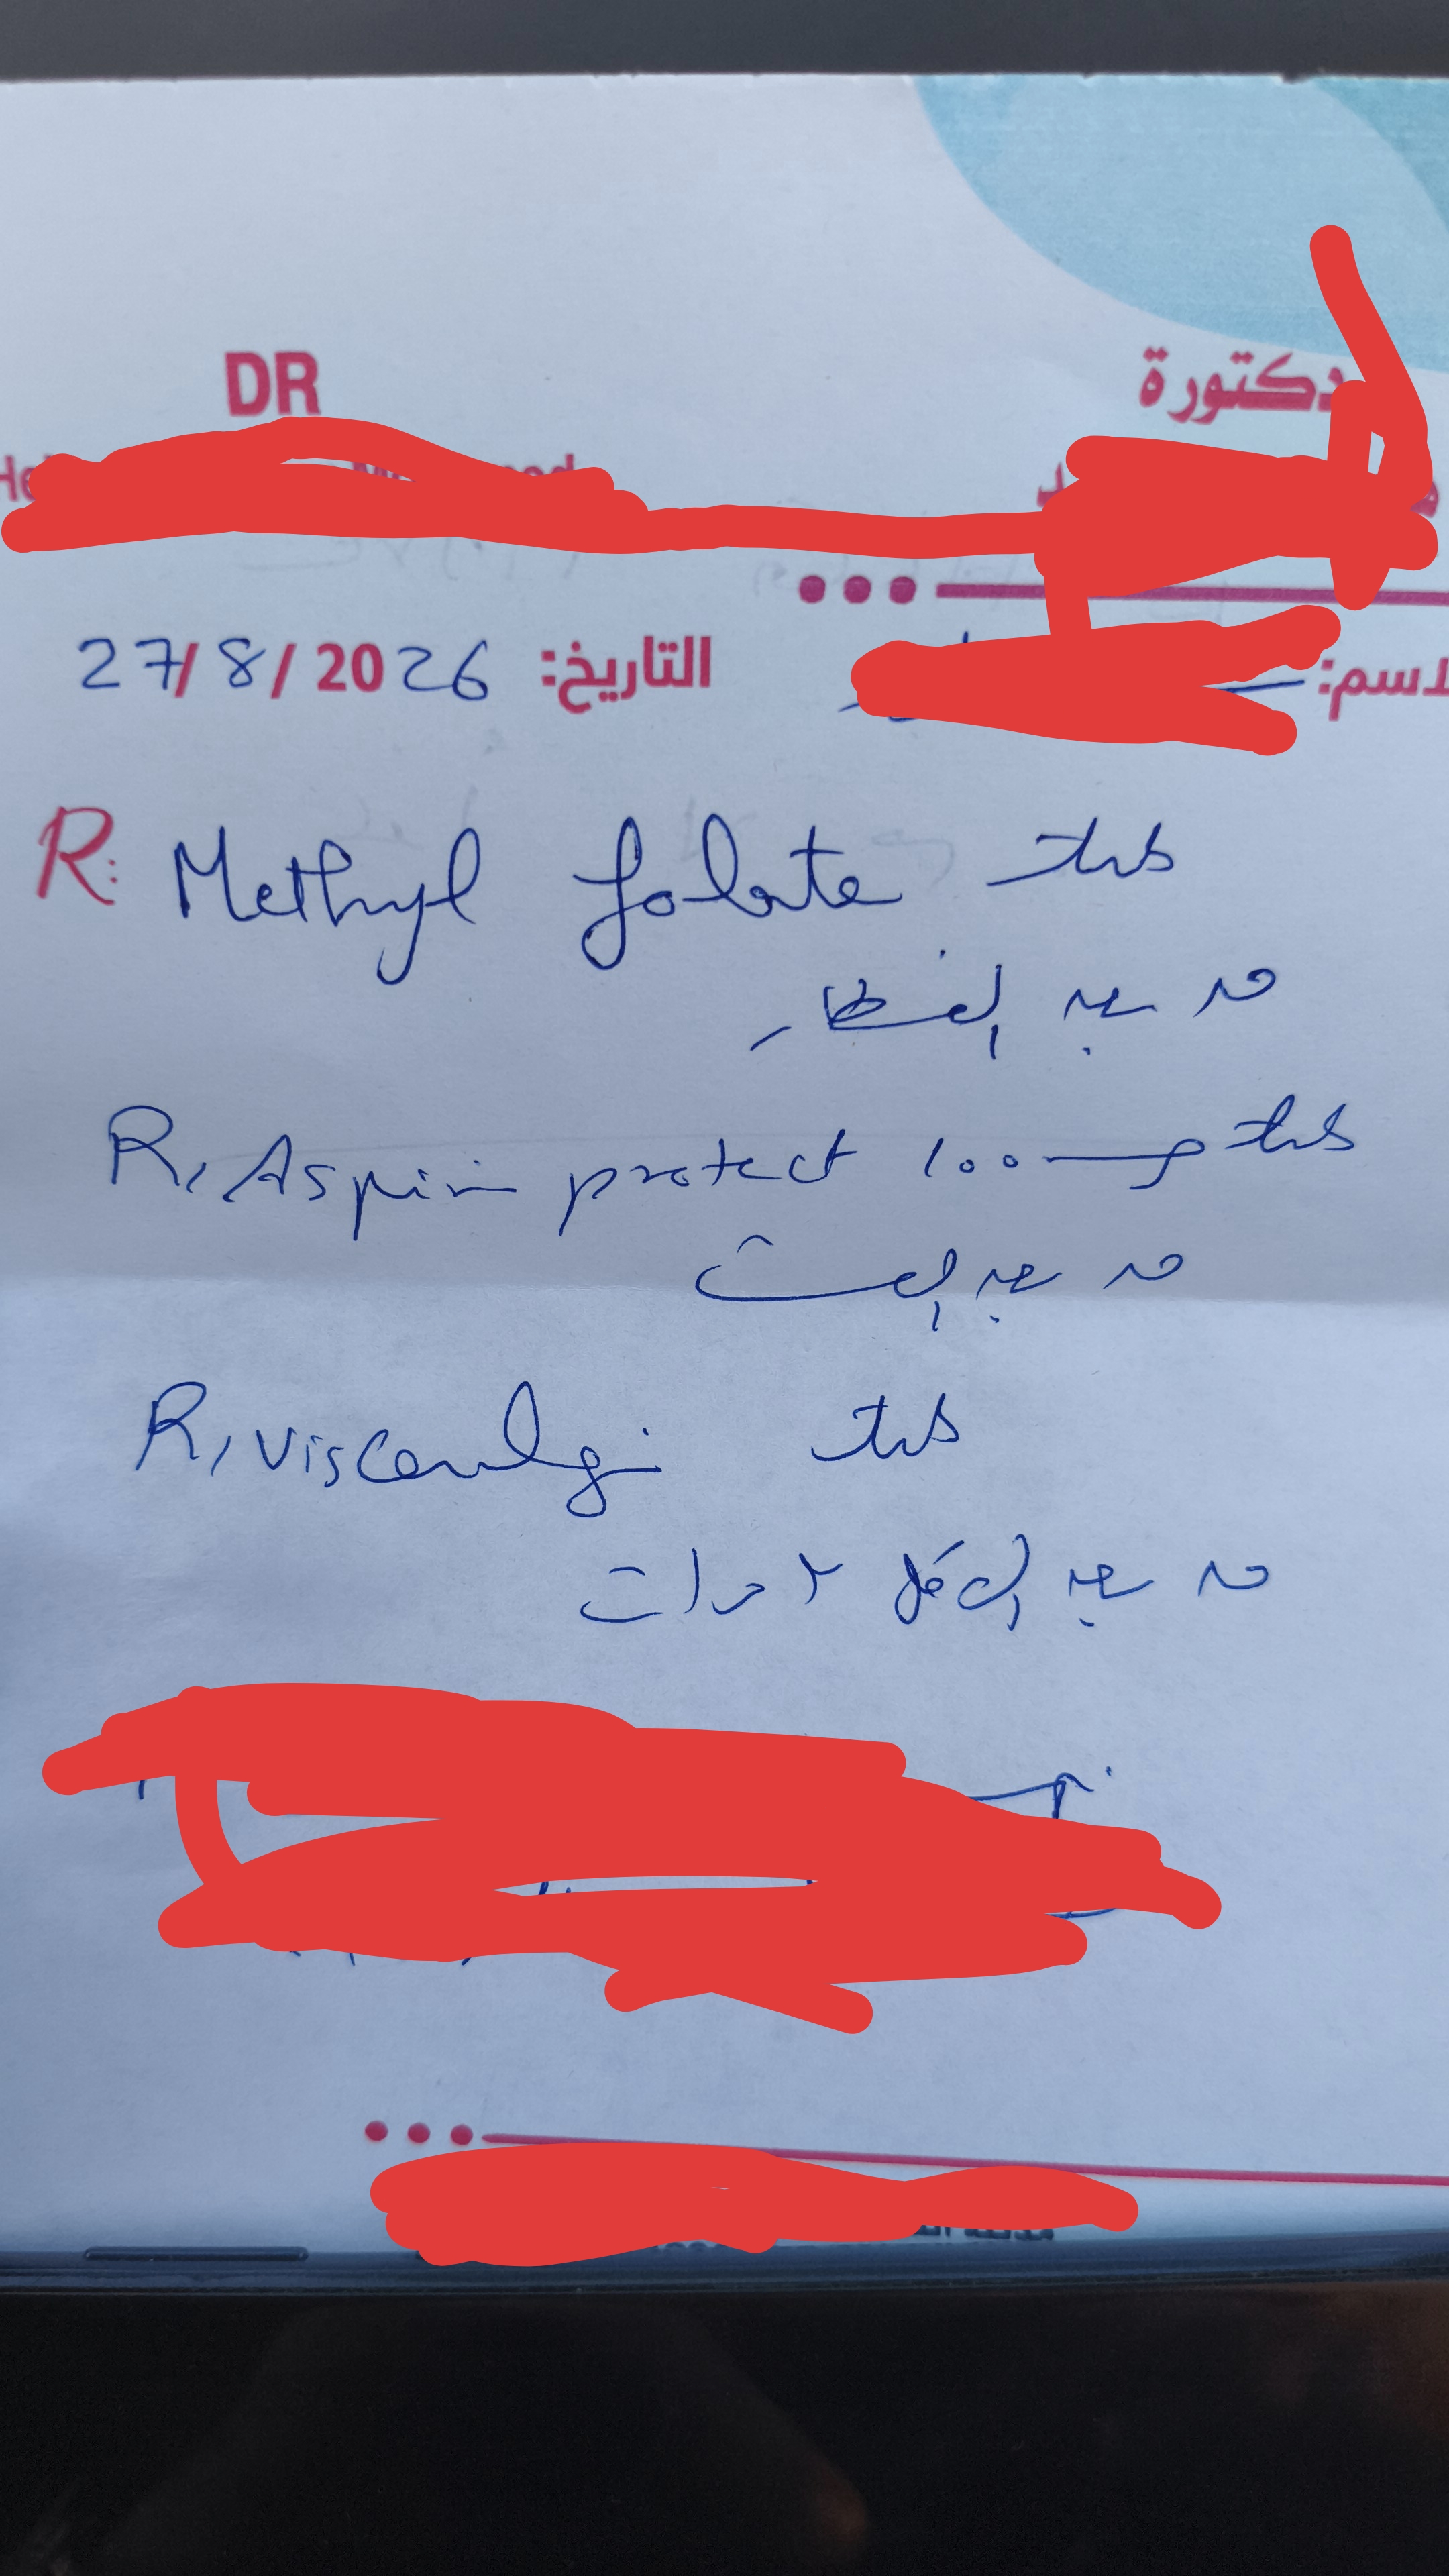 DR
دكتورة
التاريخ: 27/8/2026
R: Methyl folate tab
قرص بعد الفطار
R/ Aspirin protect 100 tab
قرص بعد
R/ Visceralgin tab
قرص بعد الاكل مرات